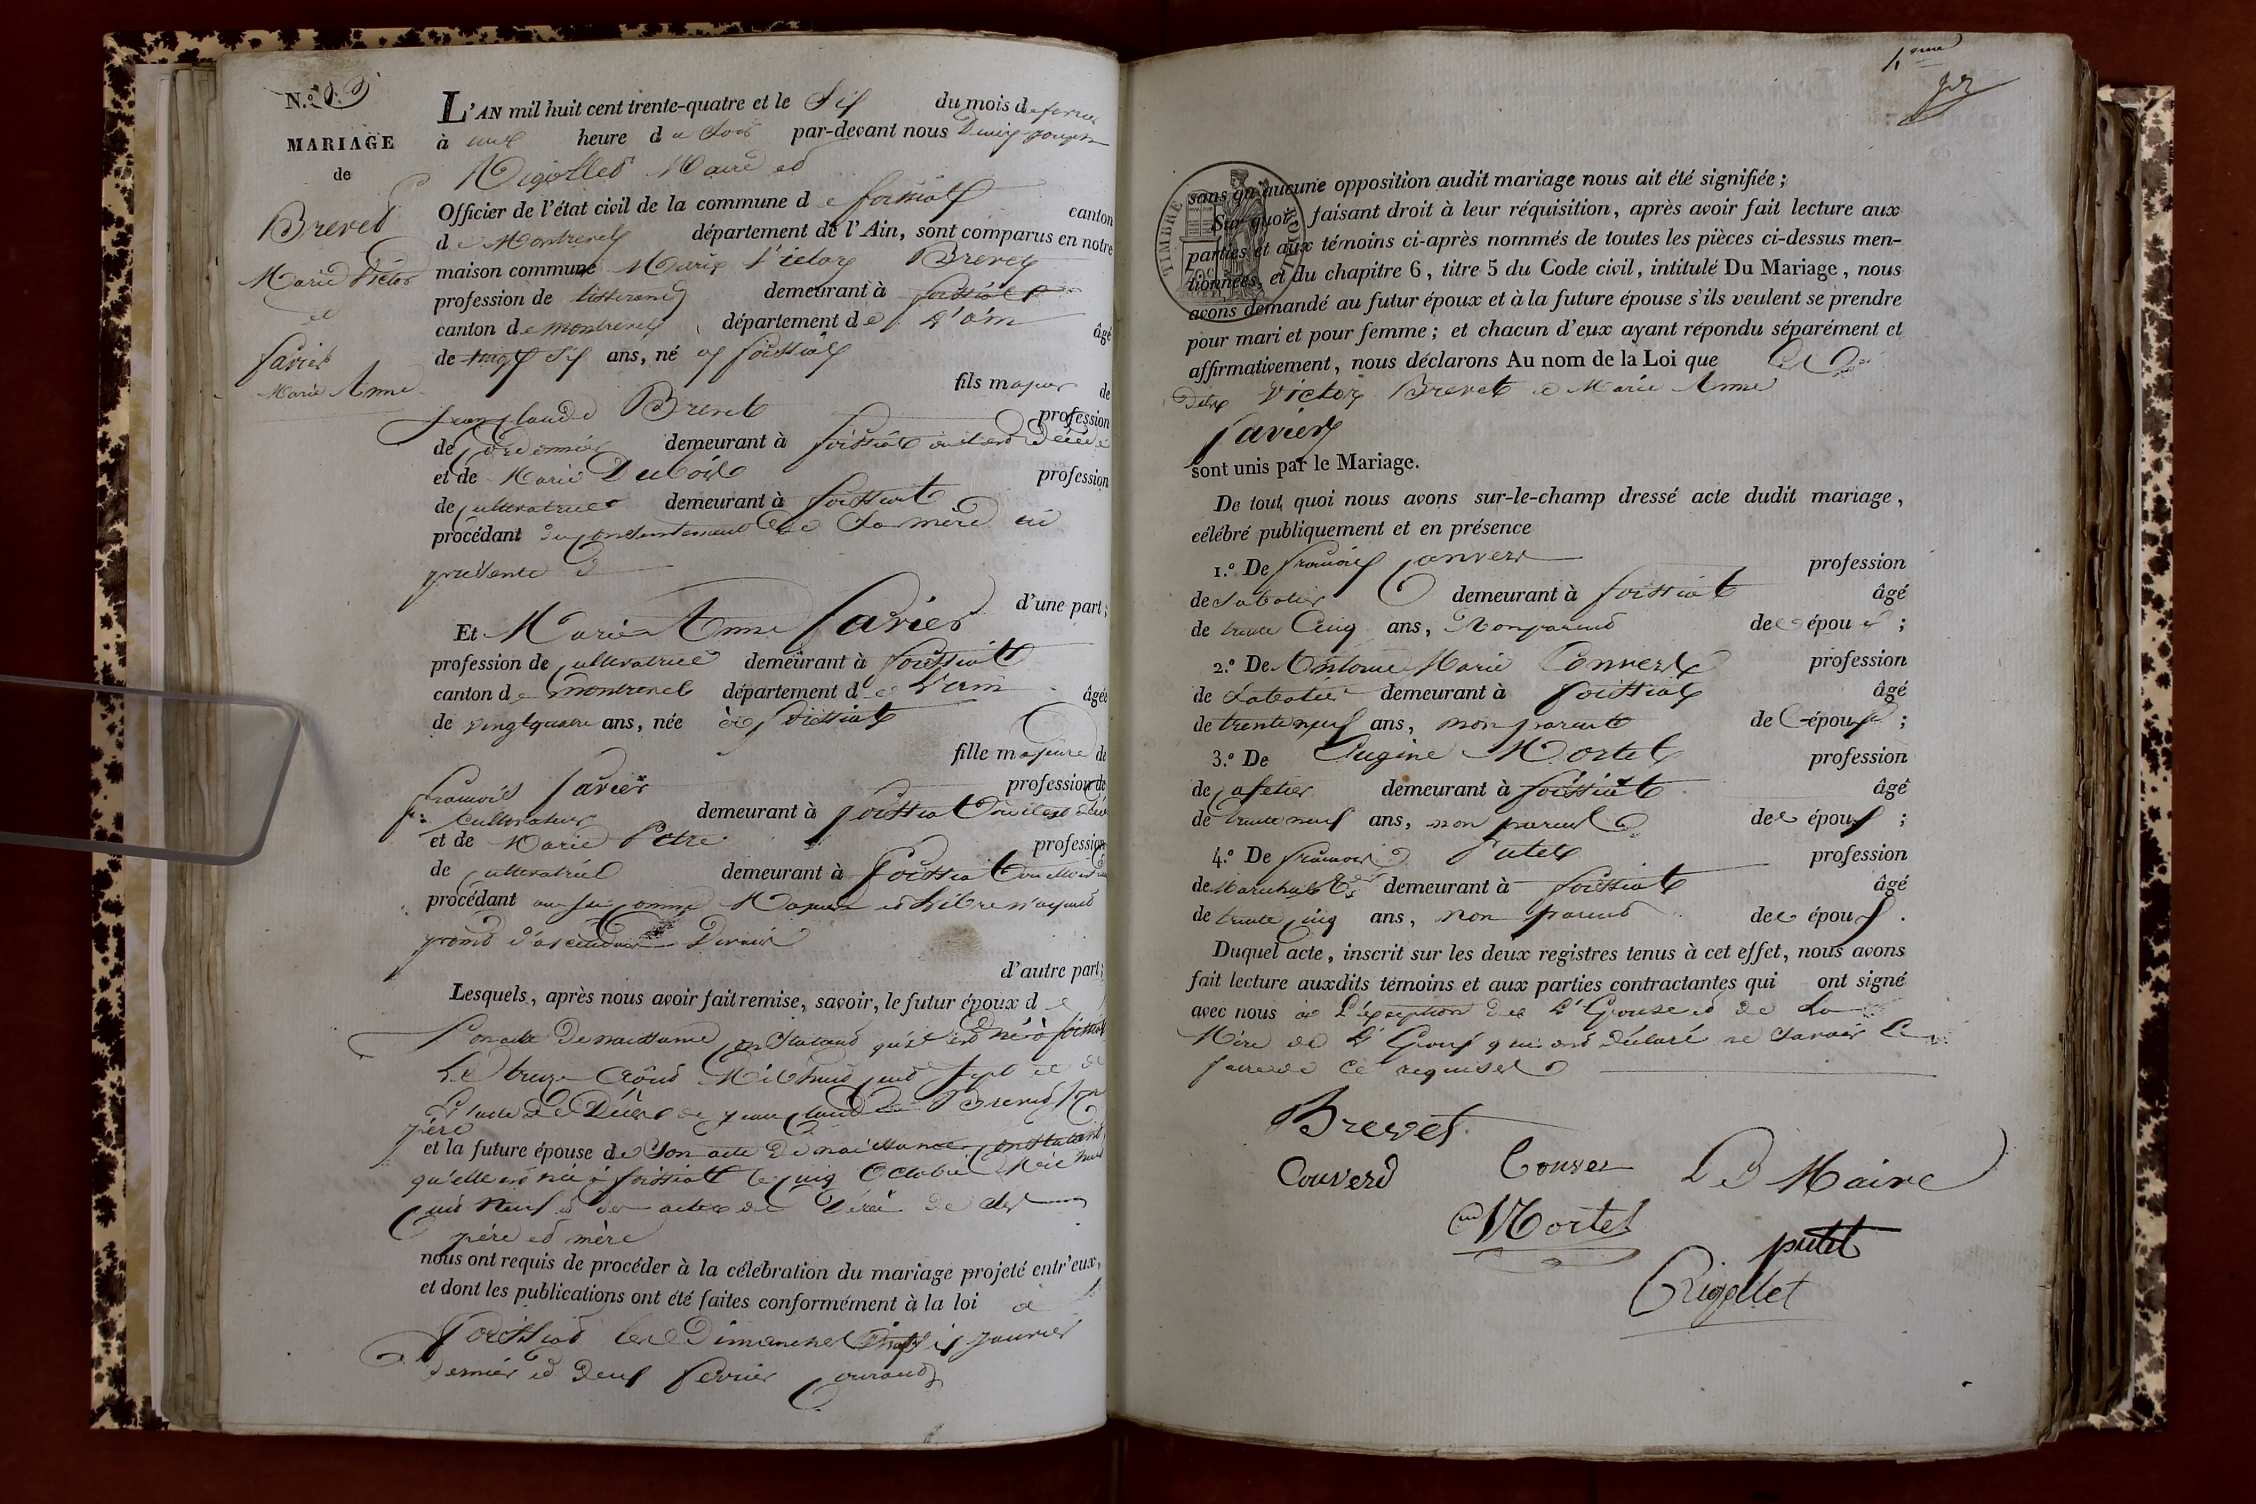 N.º
MARIAGE
de
Brevet
Marie Victor
et
favier
Marie Anne
L'AN mil huit cent trente-quatre et le Six du mois de fevrier
à une heure du Soir par-devant nous Denis joseph
Rigollet Maire et
Officier de l'état civil de la commune de foissiat canton
de Montrevel département de l'Ain, sont comparus en notre
maison commune Marie Victor Brevet
profession de tisserand demeurant à foissiat
canton de montrevel département de L'ain âgé
de vingt Six ans, né à foissiat
fils majeur de
jean claude Brevet profession
de Cordonnier demeurant à foissiat où il est décédé
et de Marie Dubois profession
de cultivatrice demeurant à foissiat
procédant du consentement de Sa mère ici
présente
d'une part;
Et Marie Anne favier
profession de cultivatrice demeurant à foissiat
canton de montrevel département de L'ain âgée
de vingt quatre ans, née à foissiat
fille majeure de
françois favier profession de
cultivateur demeurant à foissiat où il est décédé
et de Marie Petre profession
de cultivatrice demeurant à foissiat où elle est
procédant comme Majeure et Libre n'ayant
point d'ascendant
d'autre part;
Lesquels, après nous avoir fait remise, savoir, le futur époux de
Son acte de naissance constatant qu'il est né à foissiat
Le treize Août Mil huit cent sept et de
L'acte de Décès de jean claude Brevet Son
père
et la future épouse de Son acte de naissance constatant
qu'elle est née à foissiat le cinq Octobre Mil huit
cent Neuf et des actes de Décès de Ses
père et mère
nous ont requis de procéder à la célébration du mariage projeté entr'eux,
et dont les publications ont été faites conformément à la loi à
foissiat les Dimanches janvier
dernier et deux fevrier courant
sans qu'aucune opposition audit mariage nous ait été signifiée;
TIMBRE ROYAL
Sur quoi, faisant droit à leur réquisition, après avoir fait lecture aux
parties et aux témoins ci-après nommés de toutes les pièces ci-dessus men-
tionnées, et du chapitre 6, titre 5 du Code civil, intitulé Du Mariage, nous
avons demandé au futur époux et à la future épouse s'ils veulent se prendre
pour mari et pour femme; et chacun d'eux ayant répondu séparément et
affirmativement, nous déclarons Au nom de la Loi que
Victor Brevet et Marie Anne
favier
sont unis par le Mariage.
De tout quoi nous avons sur-le-champ dressé acte dudit mariage,
célébré publiquement et en présence
1.º De françois Convert profession
de Sabotier demeurant à foissiat âgé
de trente Cinq ans, Non parent des époux;
2.º De Antoine Marie Convert profession
de Sabotier demeurant à foissiat âgé
de trente neuf ans, non parent des époux;
3.º De Eugine Mortel profession
de cafetier demeurant à foissiat âgé
de trente neuf ans, non parent des époux;
4.º De françois Putet profession
de Marechal demeurant à foissiat âgé
de trente cinq ans, non parent des époux.
Duquel acte, inscrit sur les deux registres tenus à cet effet, nous avons
fait lecture auxdits témoins et aux parties contractantes qui ont signé
avec nous à L'exception de L'Epouse et de La
Mère de L'Epoux qui ont déclaré ne Savoir Le
faire de ce requises
Brevet
Couverd Conver Le Maire
Mortel
putet
Rigollet